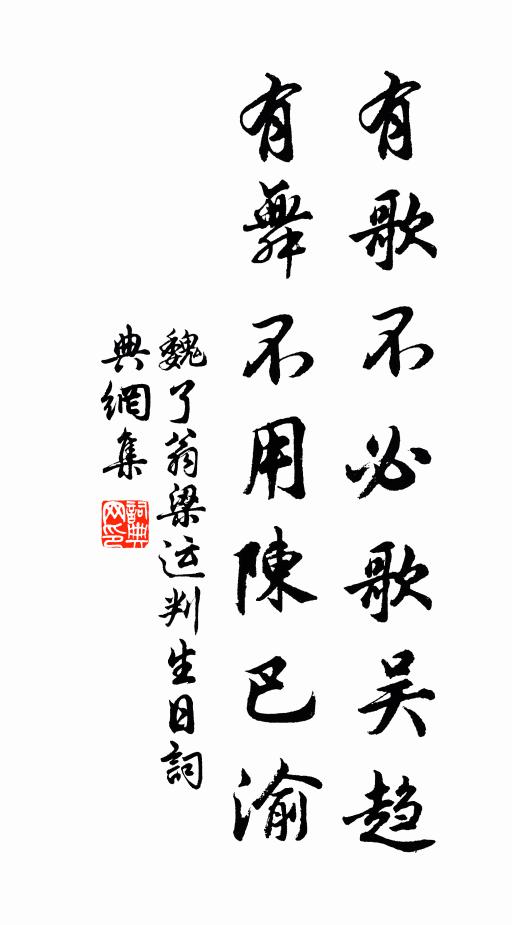 有歌不必歌吴趋
有舞不用陳巴渝
魏了翁梁运判生日詞
典網集
詞典網印